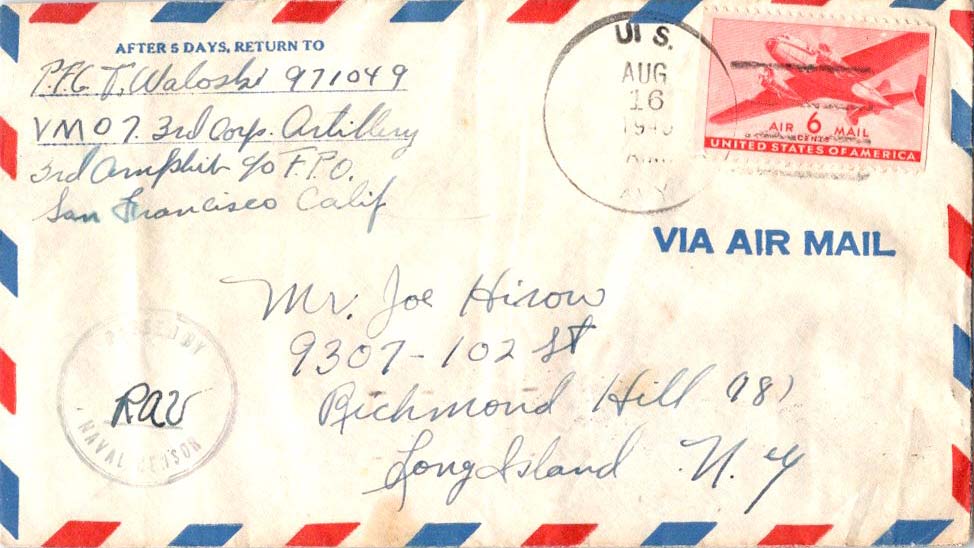 AFTER 5 DAYS, RETURN TO
P.F.C T. Waloski 971049
VMO7. 3rd Corp. Artillery
3rd Amphib c/o F.P.O.
San Francisco Calif
U.S.
AUG
16
AIR 6 MAIL
CENTS
UNITED STATES OF AMERICA
VIA AIR MAIL
Mr. Joe
9307-102 St
Richmond Hill
Long Island N.Y
PASSED BY
RAV
NAVAL CENSOR